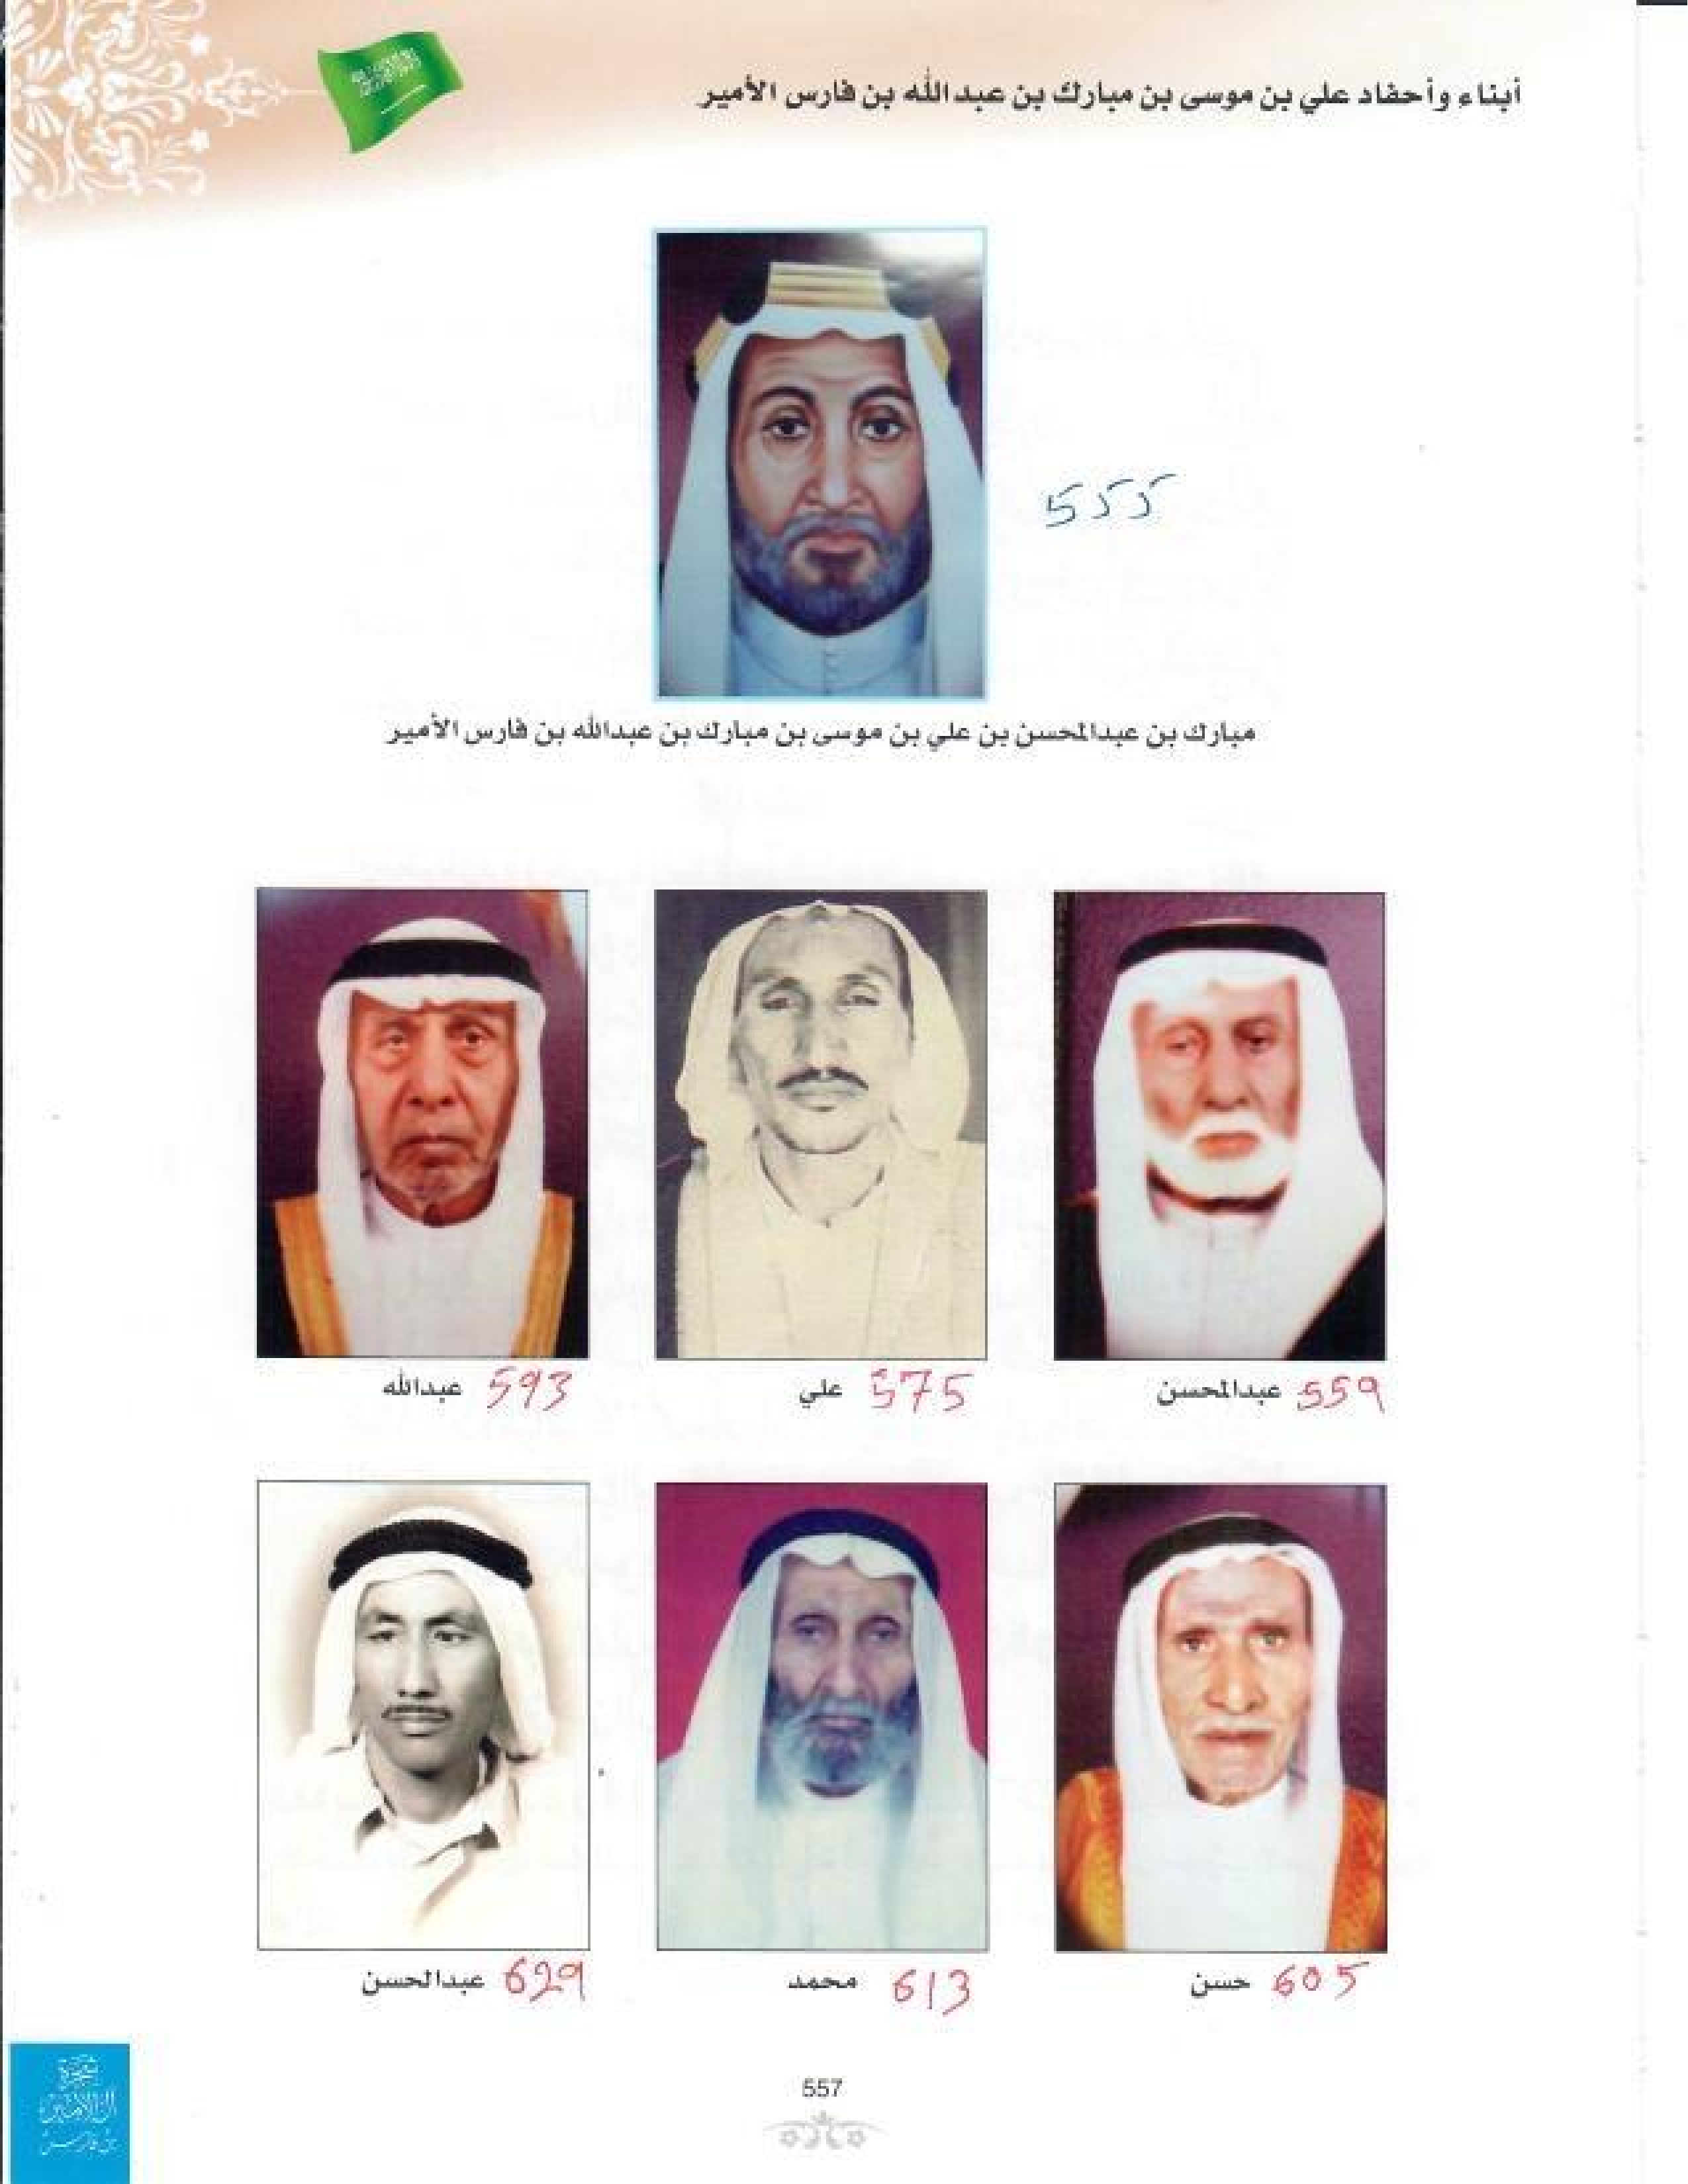 أبناء وأحفاد علي بن موسى بن مبارك بن عبدالله بن فارس الأمير
555
مبارك بن عبدالمحسن بن علي بن موسى بن مبارك بن عبدالله بن فارس الأمير
559 عبدالمحسن
575 علي
593 عبدالله
605 حسن
613 محمد
629 عبدالحسن
557
شجرة
بن فارس